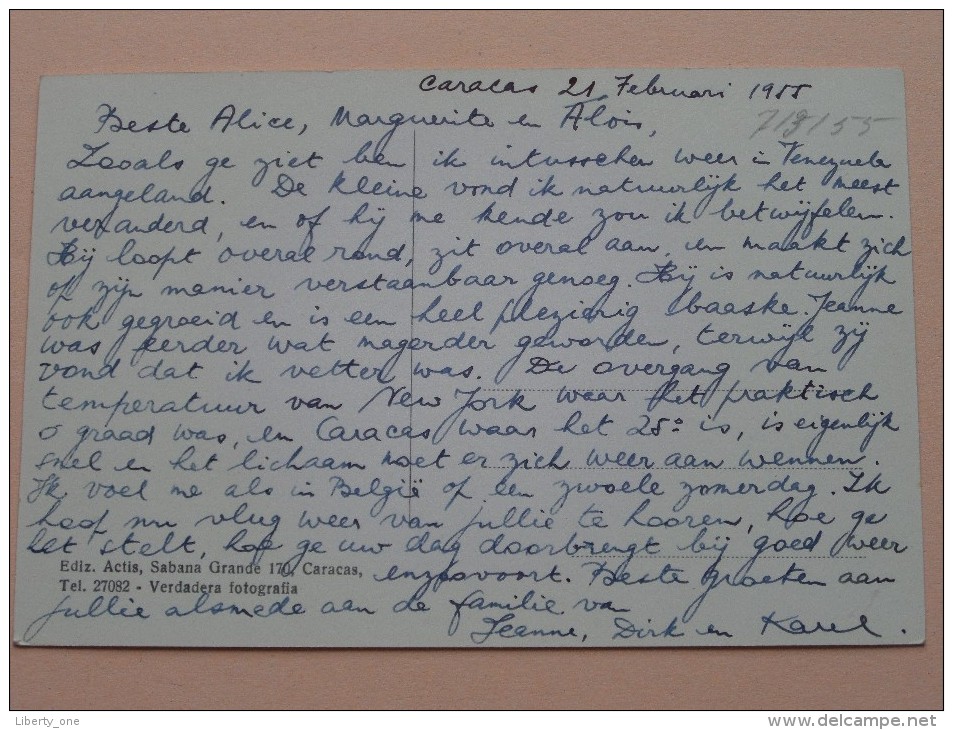 Caracas 21 Februari 1955
7/3/55
Beste Alice, Marguerite en Aloïs,
Zooals ge ziet ben ik intusschen weer in Venezuela
aangeland. De kleine vond ik natuurlijk het meest
veranderd, en of hij me kende zou ik betwijfelen.
Hij loopt overal rond, zit overal aan, en maakt zich
op zijn manier verstaanbaar genoeg. Hij is natuurlijk
ook gegroeid en is een heel plezierig baaske. Jeanne
was eerder wat magerder geworden, terwijl zij
vond dat ik vetter was. De overgang van
temperatuur van New York waar het praktisch
0 graad was, en Caracas waar het 25° is, is eigenlijk
snel en het lichaam moet er zich weer aan wennen.
Ik voel me als in België op een zwoele zomerdag. Ik
hoop nu vlug weer van jullie te hooren, hoe ge
het stelt, hoe ge uw dag doorbrengt bij goed weer
enzoovoort. Beste groeten aan
jullie alsmede aan de familie van
Jeanne, Dirk en Karel.
Ediz. Actis, Sabana Grande 170, Caracas,
Tel. 27082 - Verdadera fotografia
Liberty_one
www.delcampe.net